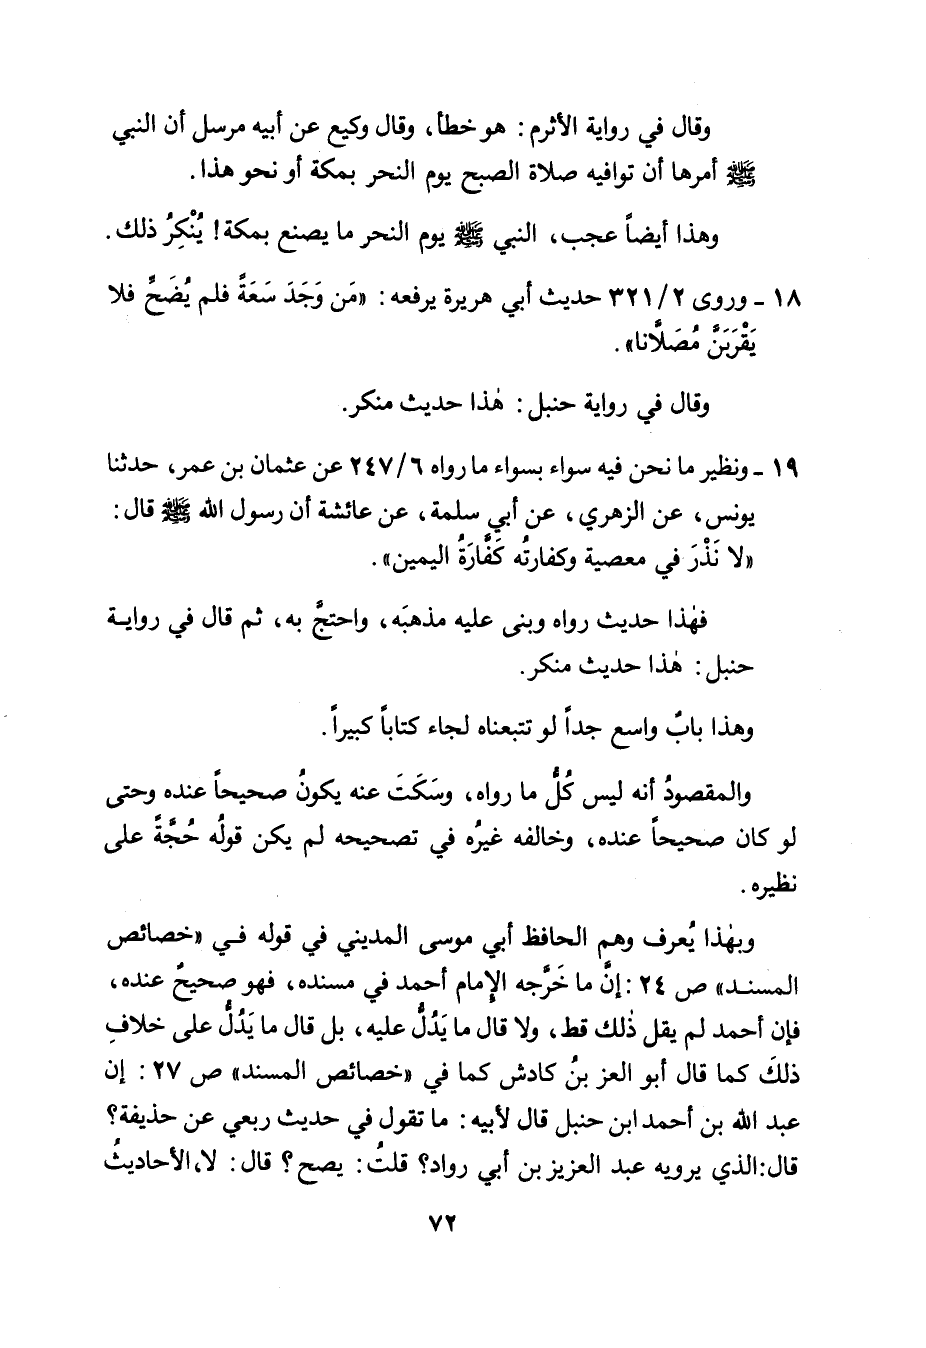 وقال في رواية الأثرم: هو خطأ، وقال وكيع عن أبيه مرسل أن النبي
ﷺ أمرها أن توافيه صلاة الصبح يوم النحر بمكة أو نحو هذا.
وهذا أيضاً عجب، النبي ﷺ يوم النحر ما يصنع بمكة! يُنْكِرُ ذلك.
١٨ - وروى ٣٢١/٢ حديث أبي هريرة يرفعه: «مَن وَجَدَ سَعَةً فلم يُضَحِّ فلا
يَقْرَبَنَّ مُصَلَّانا».
وقال في رواية حنبل: هٰذا حديث منكر.
١٩ - ونظير ما نحن فيه سواء بسواء ما رواه ٢٤٧/٦ عن عثمان بن عمر، حدثنا
يونس، عن الزهري، عن أبي سلمة، عن عائشة أن رسول الله ﷺ قال:
«لا نَذْرَ في معصية وكفارتُه كَفَّارَةُ اليمين».
فهٰذا حديث رواه وبنى عليه مذهبَه، واحتجَّ به، ثم قال في روايـة
حنبل: هٰذا حديث منكر.
وهذا بابٌ واسع جداً لو تتبعناه لجاء كتاباً كبيراً.
والمقصودُ أنه ليس كُلُّ ما رواه، وسَكَتَ عنه يكونُ صحيحاً عنده وحتى
لو كان صحيحاً عنده، وخالفه غيرُه في تصحيحه لم يكن قولُه حُجَّةً على
نظيره.
وبهٰذا يُعرف وهم الحافظ أبي موسى المديني في قوله فـي «خصائص
المسنـد» ص ٢٤ :إنَّ ما خَرَّجه الإمام أحمد في مسنده، فهو صحيحٌ عنده،
فإن أحمد لم يقل ذٰلك قط، ولا قال ما يَدُلُّ عليه، بل قال ما يَدُلُّ على خلافِ
ذلكَ كما قال أبو العز بنُ كادش كما في «خصائص المسند» ص ٢٧: إن
عبد الله بن أحمد ابن حنبل قال لأبيه: ما تقول في حديث ربعي عن حذيفة؟
قال:الذي يرويه عبد العزيز بن أبي رواد؟ قلتُ: يصح؟ قال: لا، الأحاديثُ
٧٢